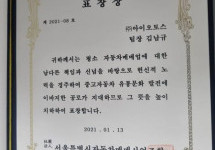 표 창 장
제 2021-08 호
㈜아이오토스
팀장 김남규
귀하께서는 평소 자동차매매업에 대한
남다른 책임과 신념을 바탕으로 헌신제 노
력을 경주하여 중고자동차 유통문화 발전에
이바지한 공로가 지대하므로 그 뜻을 높이
치하하여 표창합니다.
2021. 01. 13
서울특별시자동차매매사업조합